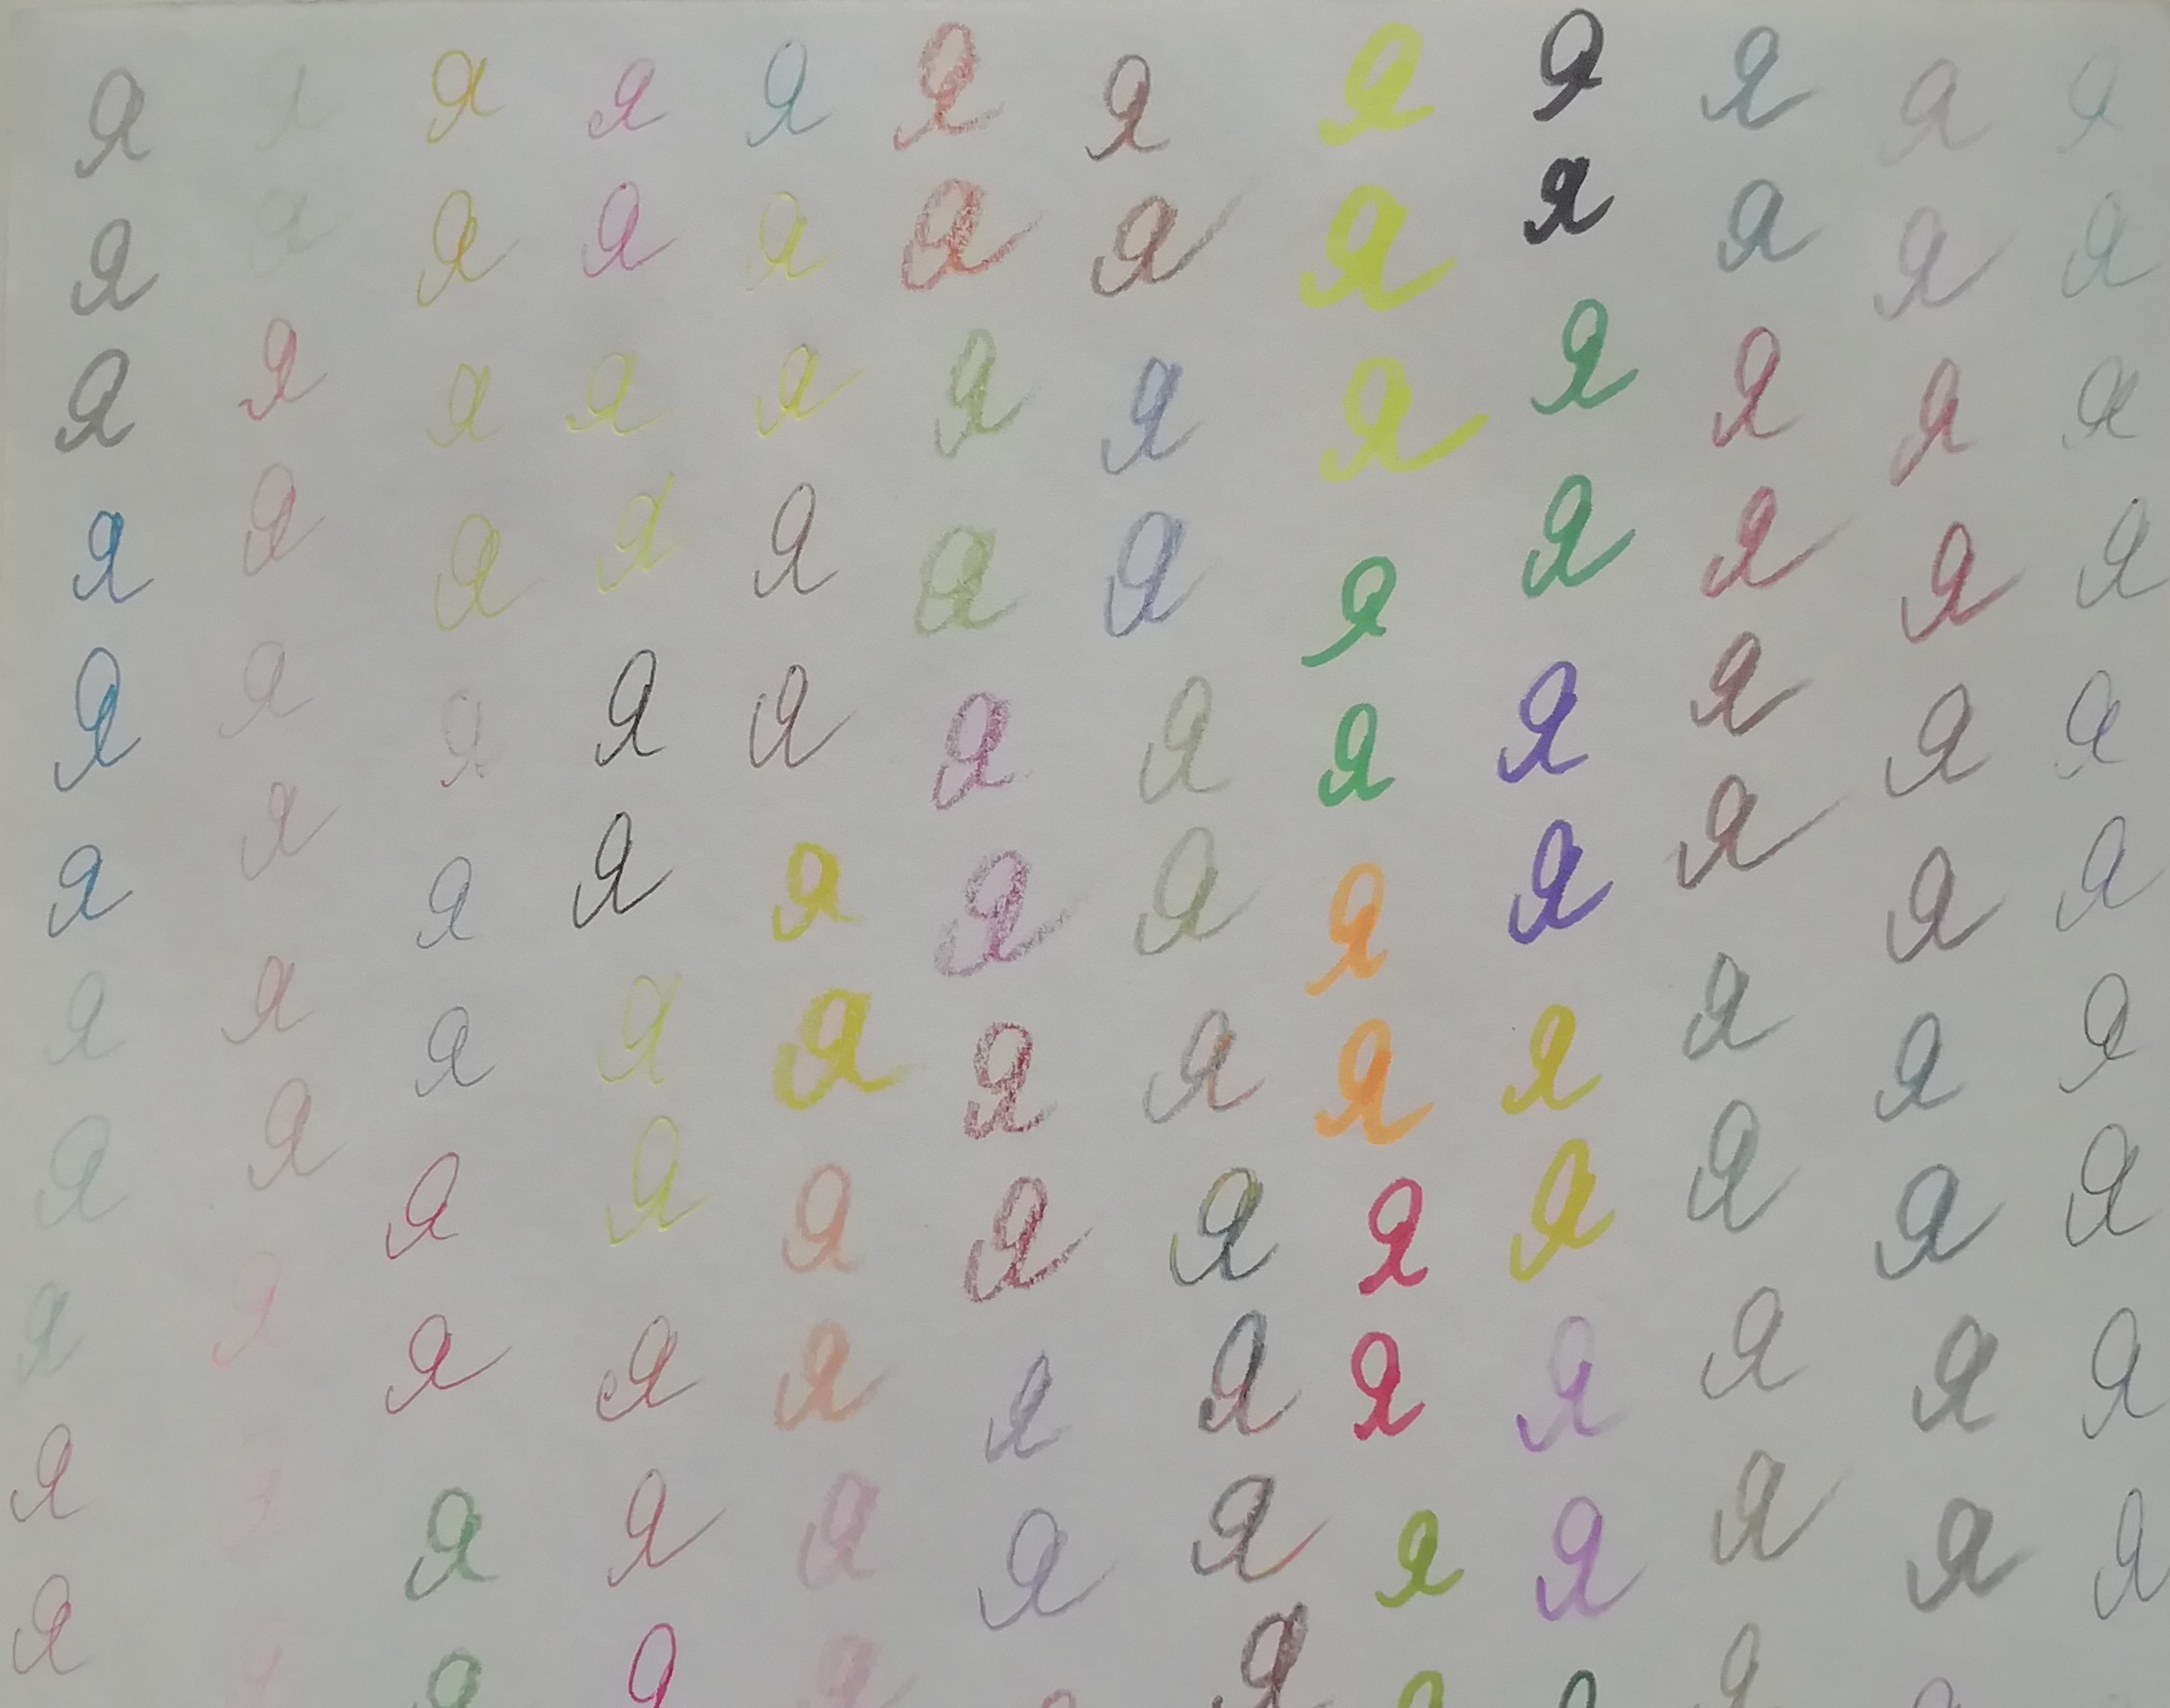 я я я я я я я я я я я я
я я я я я я я я я я я я
я я я я я я я я я я я я
я я я я я я я я я я я я
я я я я я я я я я я я я
я я я я я я я я я я я я
я я я я я я я я я я я я
я я я я я я я я я я я я
я я я я я я я я я я я я
я я я я я я я я я я я я
я я я я я я я я я я